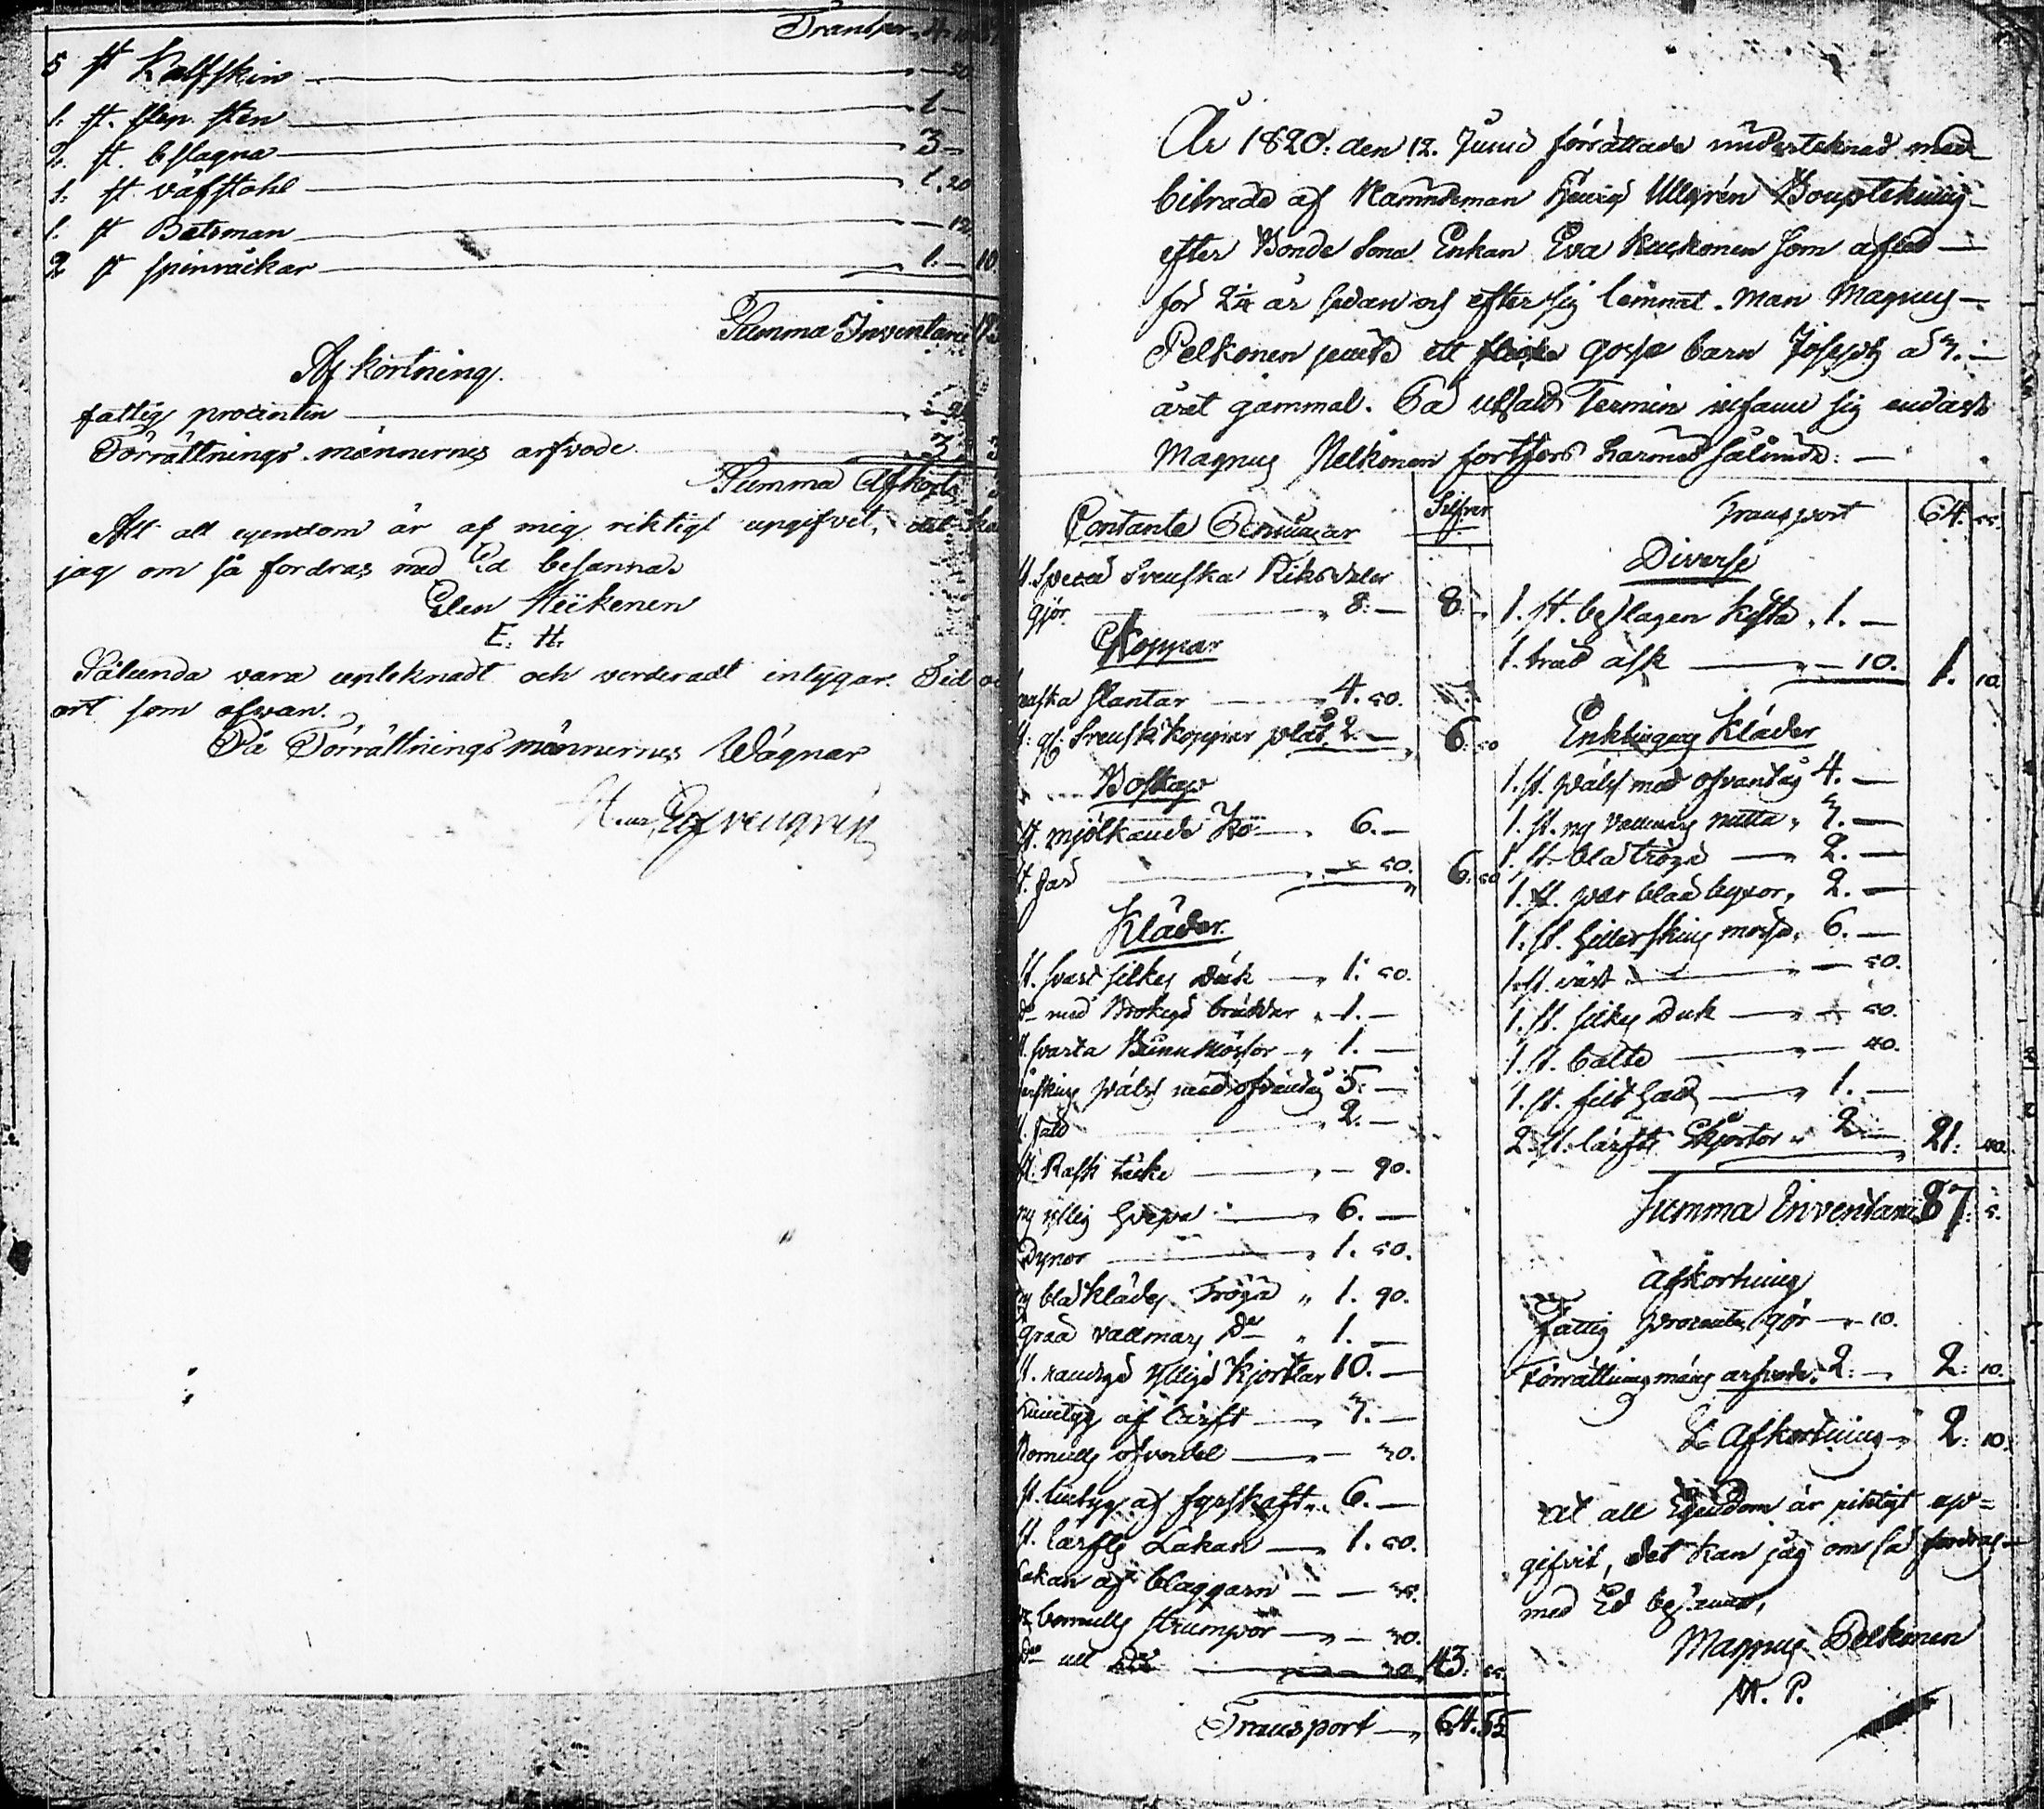 Transpor
5 st Kalfskin — 50
1: st. slip. sten — 1 —
2. st. beslagna — 3 —
1: st väfstohl — 1. 20
1. st Betsman — 12
2 st spinråckar — 1. — 10
Summa Inventarii
Afkortning.
fattig procenten
Förrättnings männernes arfvode 3
Summa Afkort
Att all egendom är af mig riktigt uppgifvet, det ka
jag om så fordras med Ed besanna.
Elen Heikenen
E. H.
Sålunda vara uptecknadt och verderadt intygar. Tid oc
ort som ofwan.
På Förrättnings männernes Wägnar
År 1820: den 12. Junii förrättade undertecknad med
biträde af Nämndeman Ullgrén Bouptekning
efter Bonde Sons Enkan Eva som afled
för 2 1/4 år sedan och efter sig lemnat. Man Magnus
Pelkonen samt ett gosse barn Joseph
året gammal. På utsatt Termin infann sig endast
Magnus Pelkonen fortfors härmed sålunda: —
Contante Penningar Silfver
st. Specie Svenska Riksdaler
gjör. — 8: — 8: —
Koppar
slantar — 4. 50.
Svensk koppar plåt. 2. — 6: 50
Boskap
st. mjölkande Ko — 6. —
st. får — 50. 6. 50
Kläder.
st. svart silkes duk — 1. 50.
do med — 1. —
st. svarta — 1. —
skins päls med ofvantyg 5. —
st. fäld — 2. —
st. täcke — 90.
ny — 6. —
Dynor — 1. 50.
ny blå klädes Tröja „ 1. 90.
graa vallmars do „ 1. —
st. randiga ylliga Kjortlar 10. —
af lärft —
Bomulls öfverdel —
st. lintyg af fyrskaft „ 6. —
st. lärfts Lakan — 1. 50.
Lakan af blaggarn —
bomulls strumpor —
do ull do — 43. 55.
Transport — 64. 55
Transport 64. 55.
Diverse
1. st. beslagen kista „ 1. —
1. träd ask — 10. 1. 10.
Enklingens Kläder
1. st. päls med ofvantyg 4. —
1. st. ny vallmars
1. st. blå tröja — 2. —
1. st. par blaa byxor „ 2. —
1. st. hillerskins mössa, 6. —
1. st. väst — 50.
1. st. silkes Duk — 50.
1. st. bälte — 40.
1. st. filt hatt — 1. —
2. st. lärfts Skjortor „ 2 — 21: 40.
Summa Inventarii 87: 5.
Afkortning
Fattig procenten gör — 10.
Förrättningsmäns arfvode. 2: — 2: 10.
Sa Afkortning — 2: 10.
At all Egendom är riktigt up=
gifvit, det kan jag om så fordras
med Ed besanna,
Magnus Pelkonen
M. P.